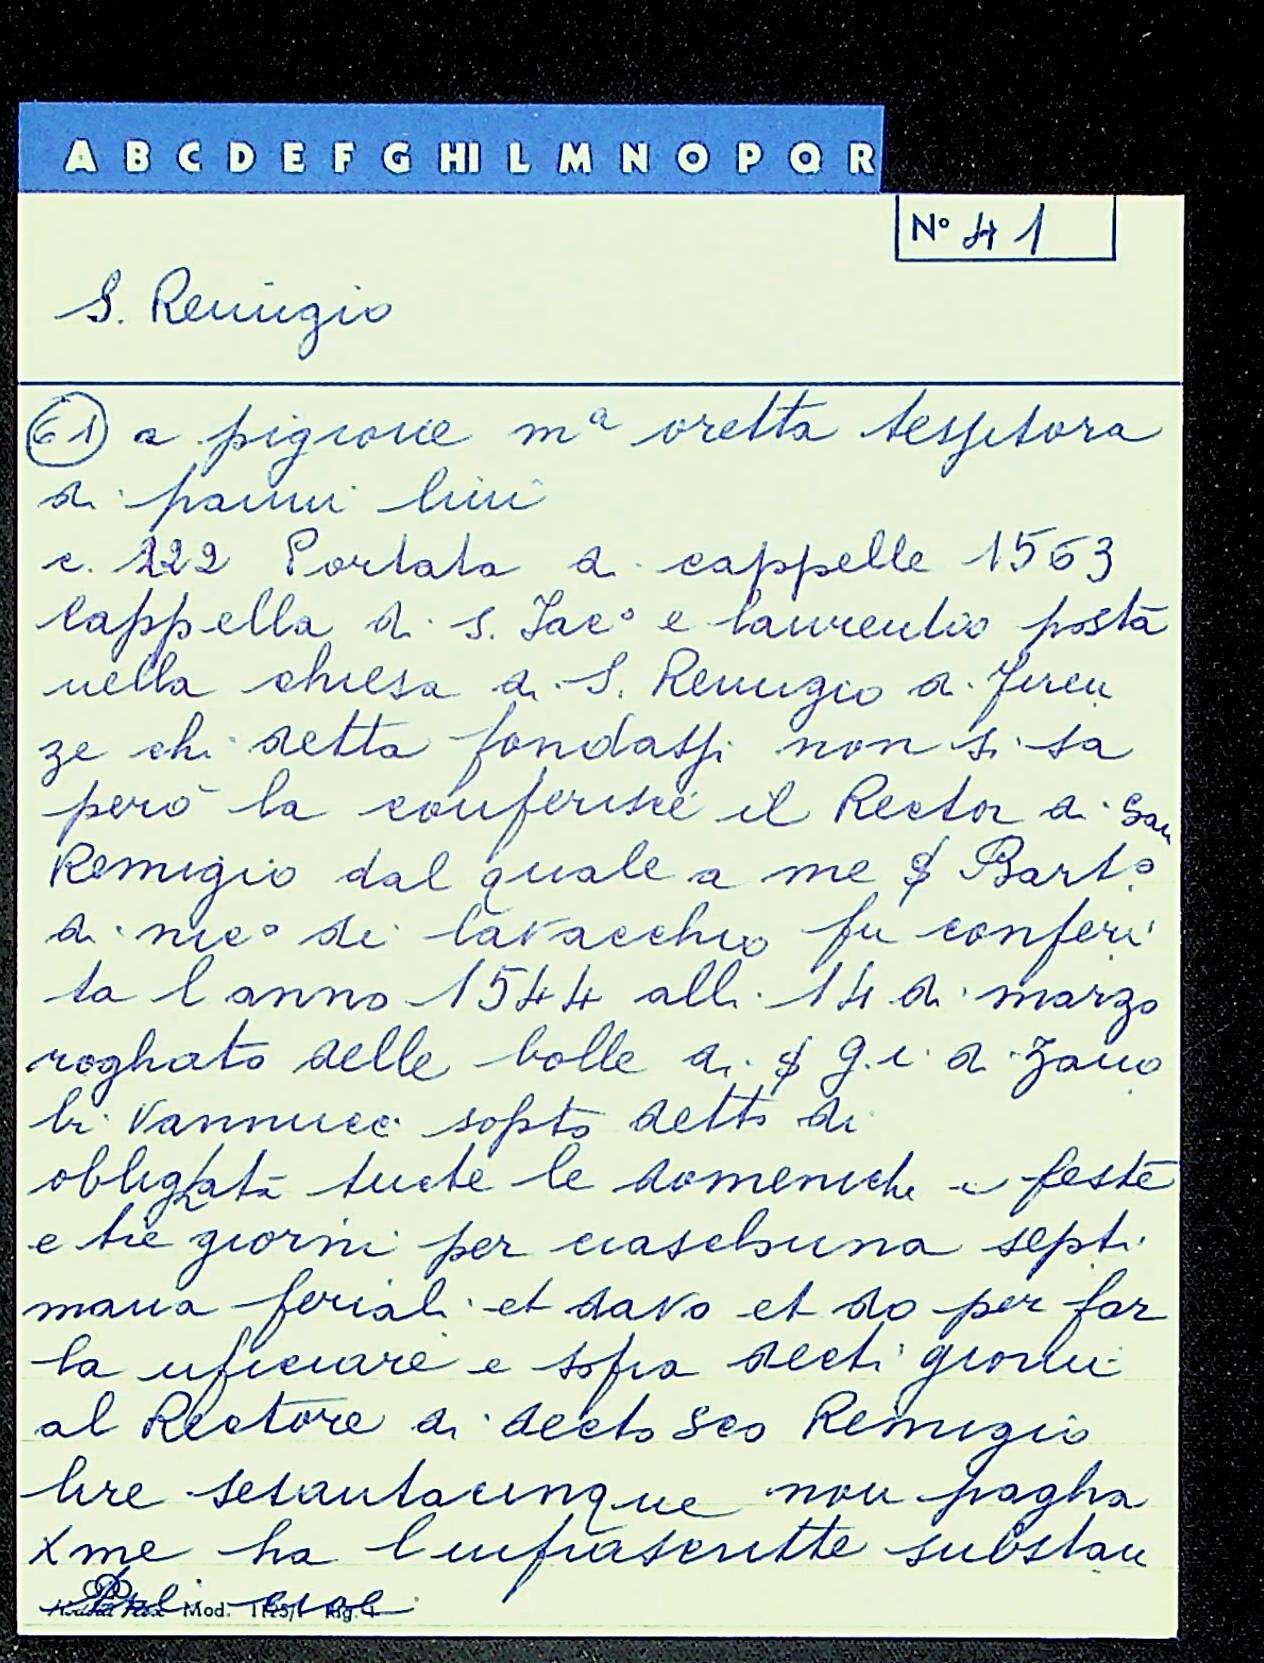 A B C D E F G HI L M N O P Q R
N° 41
S. Remigio
61 a pigione mª oretta tessitora
di panni lini
c. 222 Portata di cappelle 1563
Cappella di S. Jac° e laurentio posta
nella chiesa di S. Remigio di Firen
ze chi detta fondassi non si sa
però la conferisce il Rector di San
Remigio dal quale a me $ Barto
di nic° di lavacchio fu conferi
ta l anno 1544 alli 14 di marzo
roghato delle bolle di $ g.i. di Zano
bi Vannucci sopto detto di
obligata tucte le domeniche e feste
e tre giorni per ciaschuna septi
mana feriali et davo et do per far
la uficiare e sopra decti giorni
al Rectore di decto Sco Remigio
lire sesantacinque non pagha
x me ha l infrascritte substan
Mod.